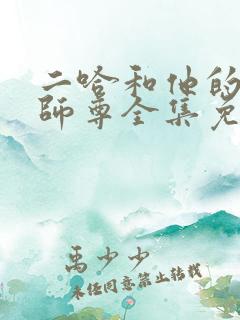 二哈和他的
师尊全集免
禹少少
未经同意禁止转载